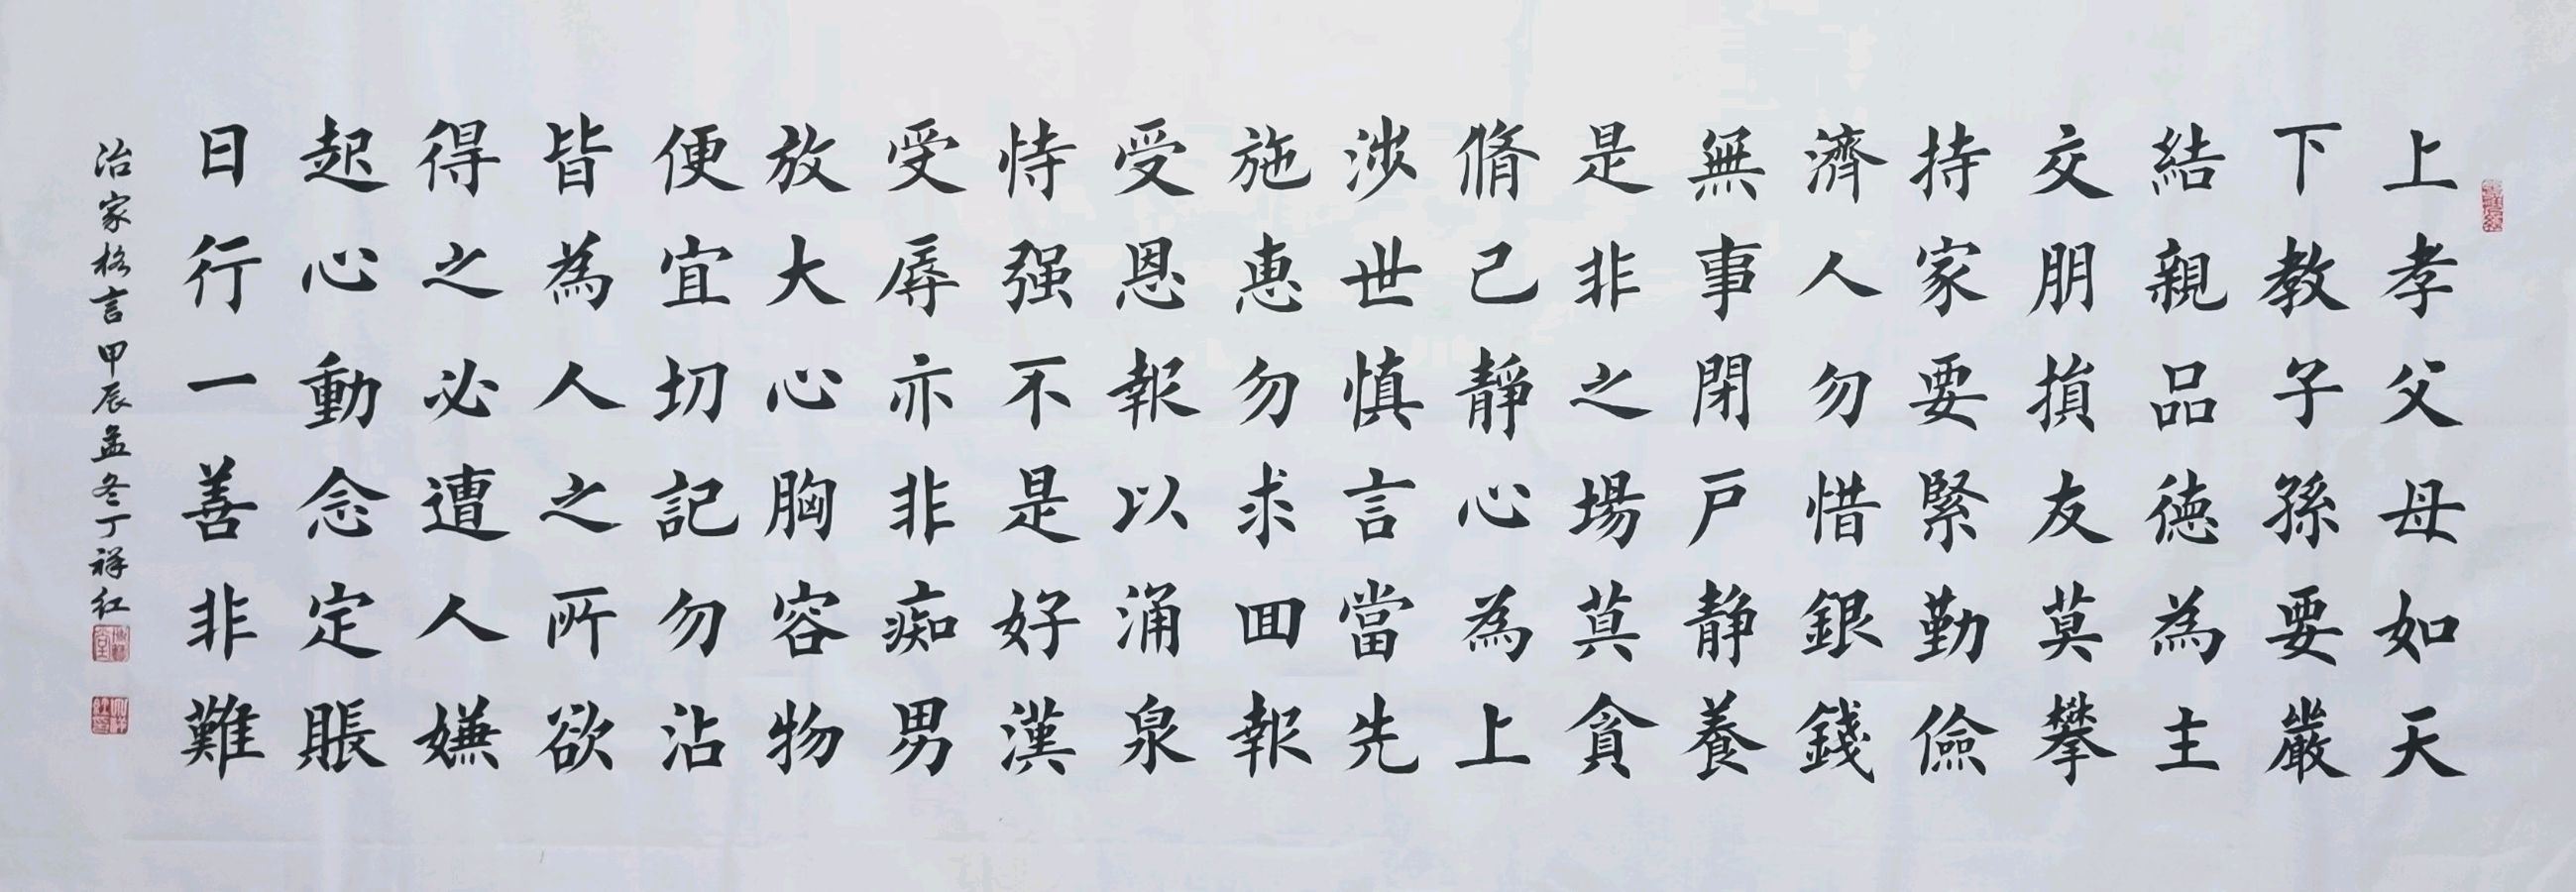 上孝父母如天
下教子孫要嚴
結親品德為主
交朋損友莫攀
持家要緊勤儉
濟人勿惜銀錢
無事閉戶静養
是非之場莫貪
脩己靜心為上
涉世慎言當先
施惠勿求囬報
受恩報以涌泉
恃强不是好漢
受辱亦非痴男
放大心胸容物
便宜切記勿沾
皆為人之所欲
得之必遭人嫌
起心動念定賬
日行一善非難
治家格言甲辰孟冬丁祥红